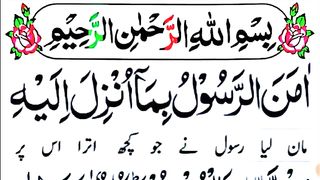 بِسْمِ اللهِ الرَّحْمٰنِ الرَّحِيْمِ
اٰمَنَ الرَّسُوْلُ بِمَاۤ اُنْزِلَ اِلَيْهِ
مان لیا رسول نے جو کچھ اترا اس پر